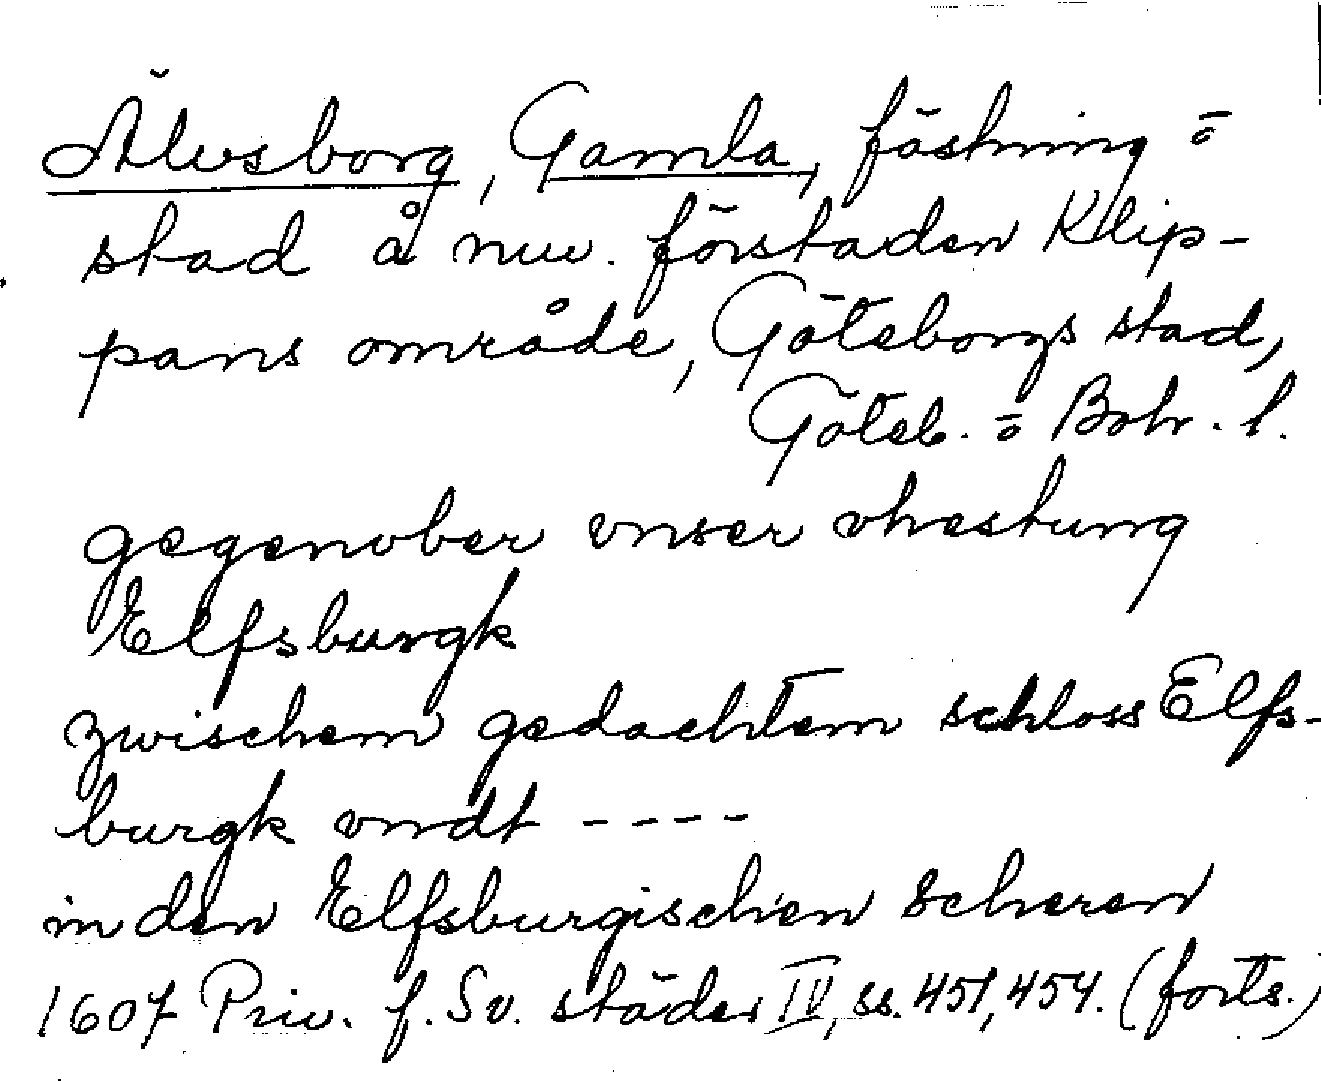 Älvsborg, Gamla, fästning o
stad å nuv. förstaden Klip-
pans område, Göteborgs stad,
Göteb. o Boh. l.
gegenvber vnser vhestung
Elfsburgk
zwischem gedachtem schloss Elfs-
burgk vndt ----
in den Elfsburgischen scheren
1607 Priv. f. Sv. städer IV, ss. 451, 454. (forts.)